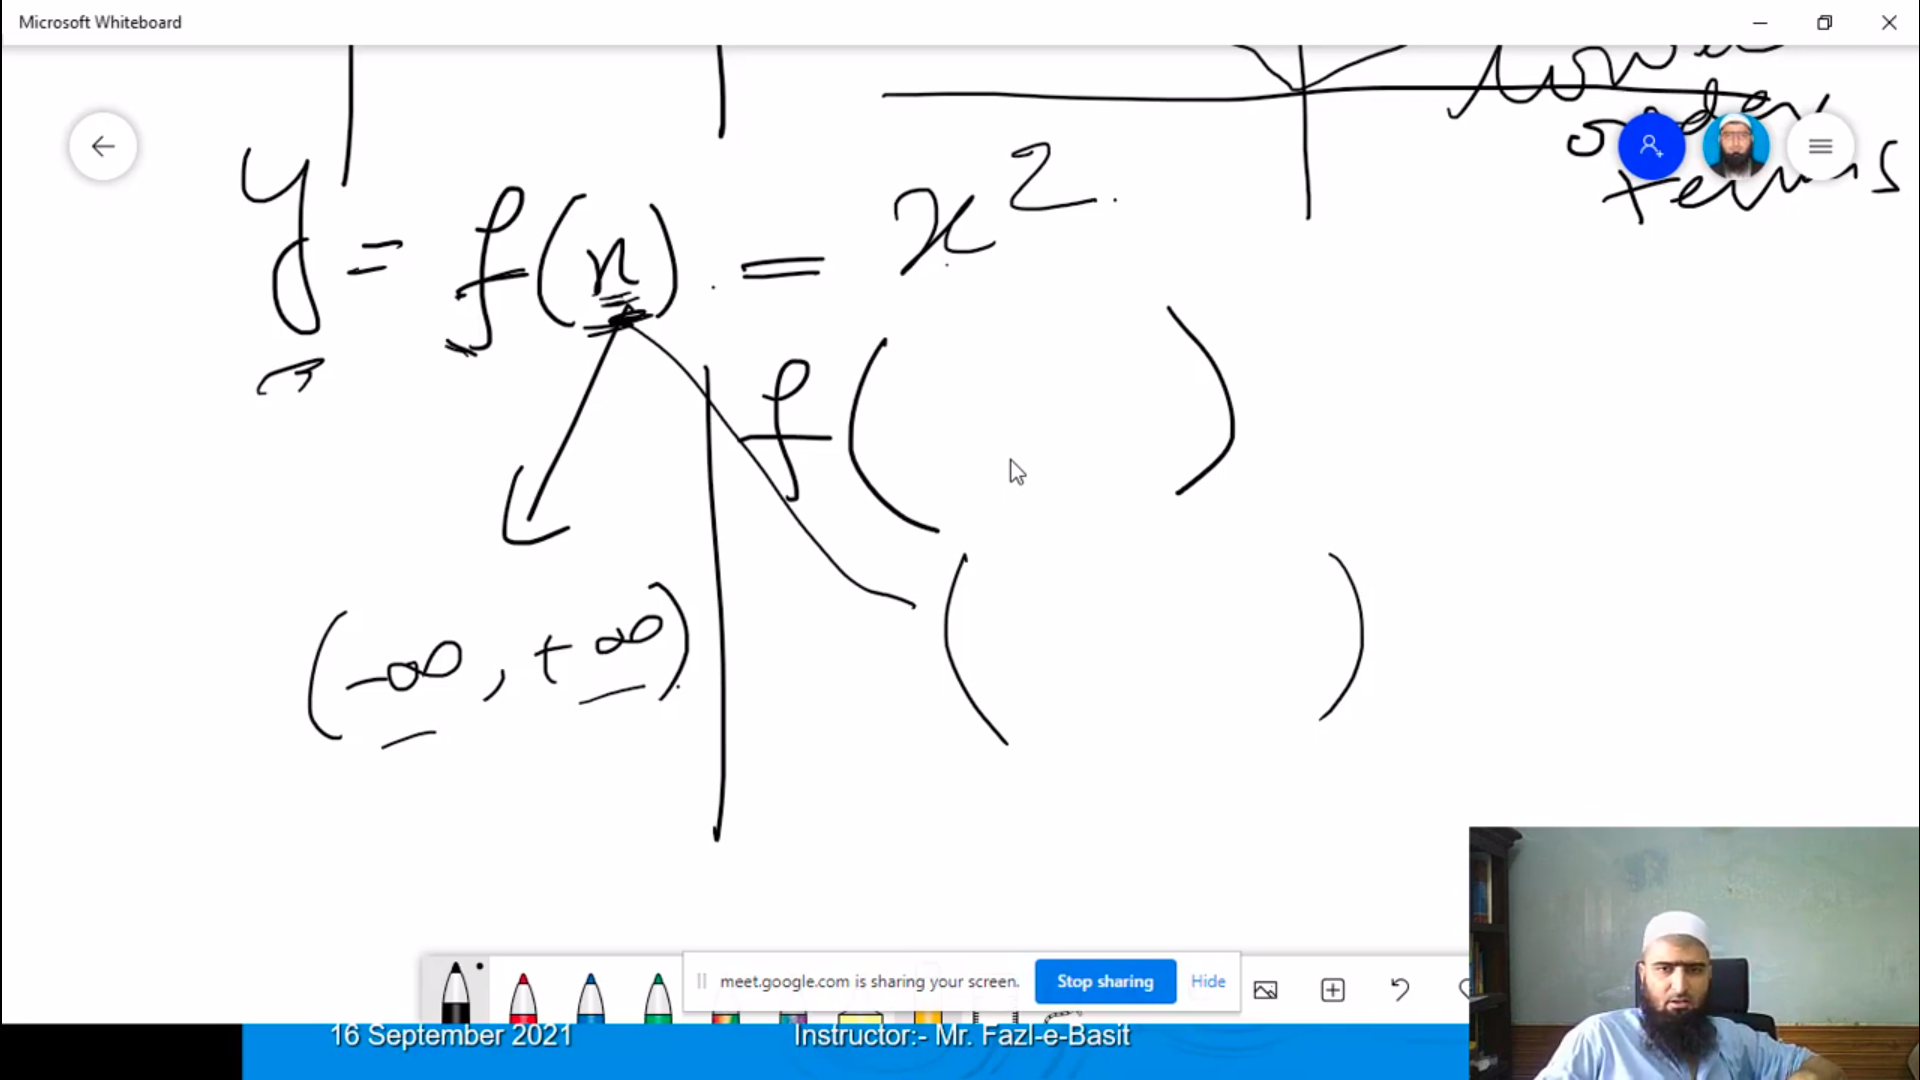 Microsoft Whiteboard
order
terms
y = f(x) = x²
f( )
(-∞, +∞)
( )
meet.google.com is sharing your screen. Stop sharing Hide
16 September 2021 Instructor:- Mr. Fazl-e-Basit